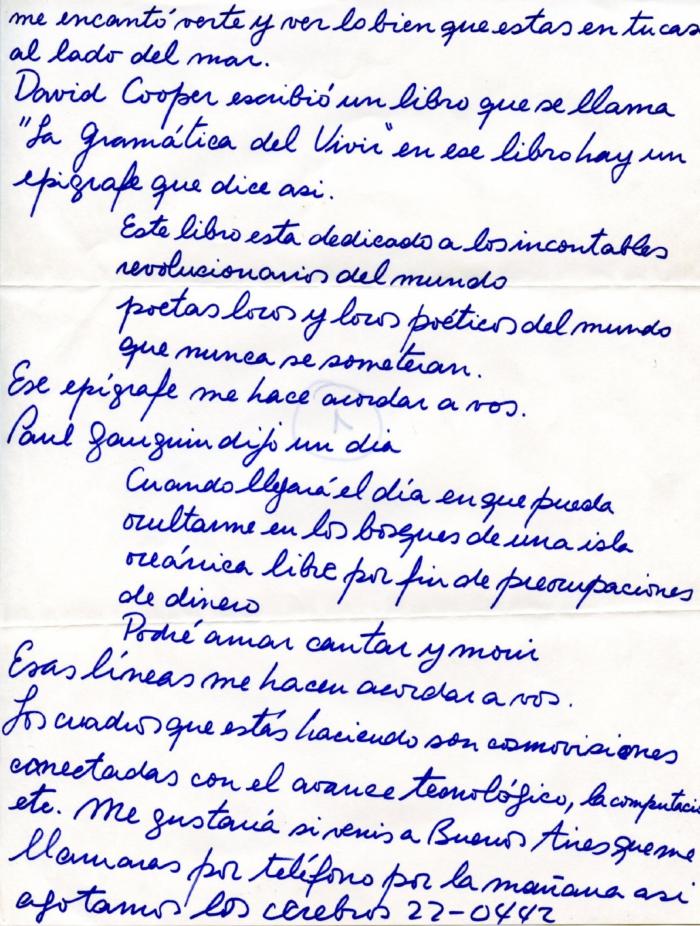 me encantó verte y ver lo bien que estas en tu cas
al lado del mar.
David Cooper escribió un libro que se llama
"La Gramática del Vivir" en ese libro hay un
epígrafe que dice asi.
Este libro esta dedicado a los incontables
revolucionarios del mundo
poetas locos y locos poéticos del mundo
que nunca se someteran.
Ese epígrafe me hace acordar a vos.
1
Paul Gauguin dijo un dia
Cuando llegará el día en que pueda
ocultarme en los bosques de una isla
oceánica libre por fin de preocupaciones
de dinero
Podré amar cantar y morir
Esas líneas me hacen acordar a vos.
Los cuadros que estás haciendo son cosmovisiones
conectadas con el avance tecnológico, la computació
etc. Me gustaría si venis a Buenos Aires que me
llamaras por teléfono por la mañana asi
agotamos los cerebros 22-0442